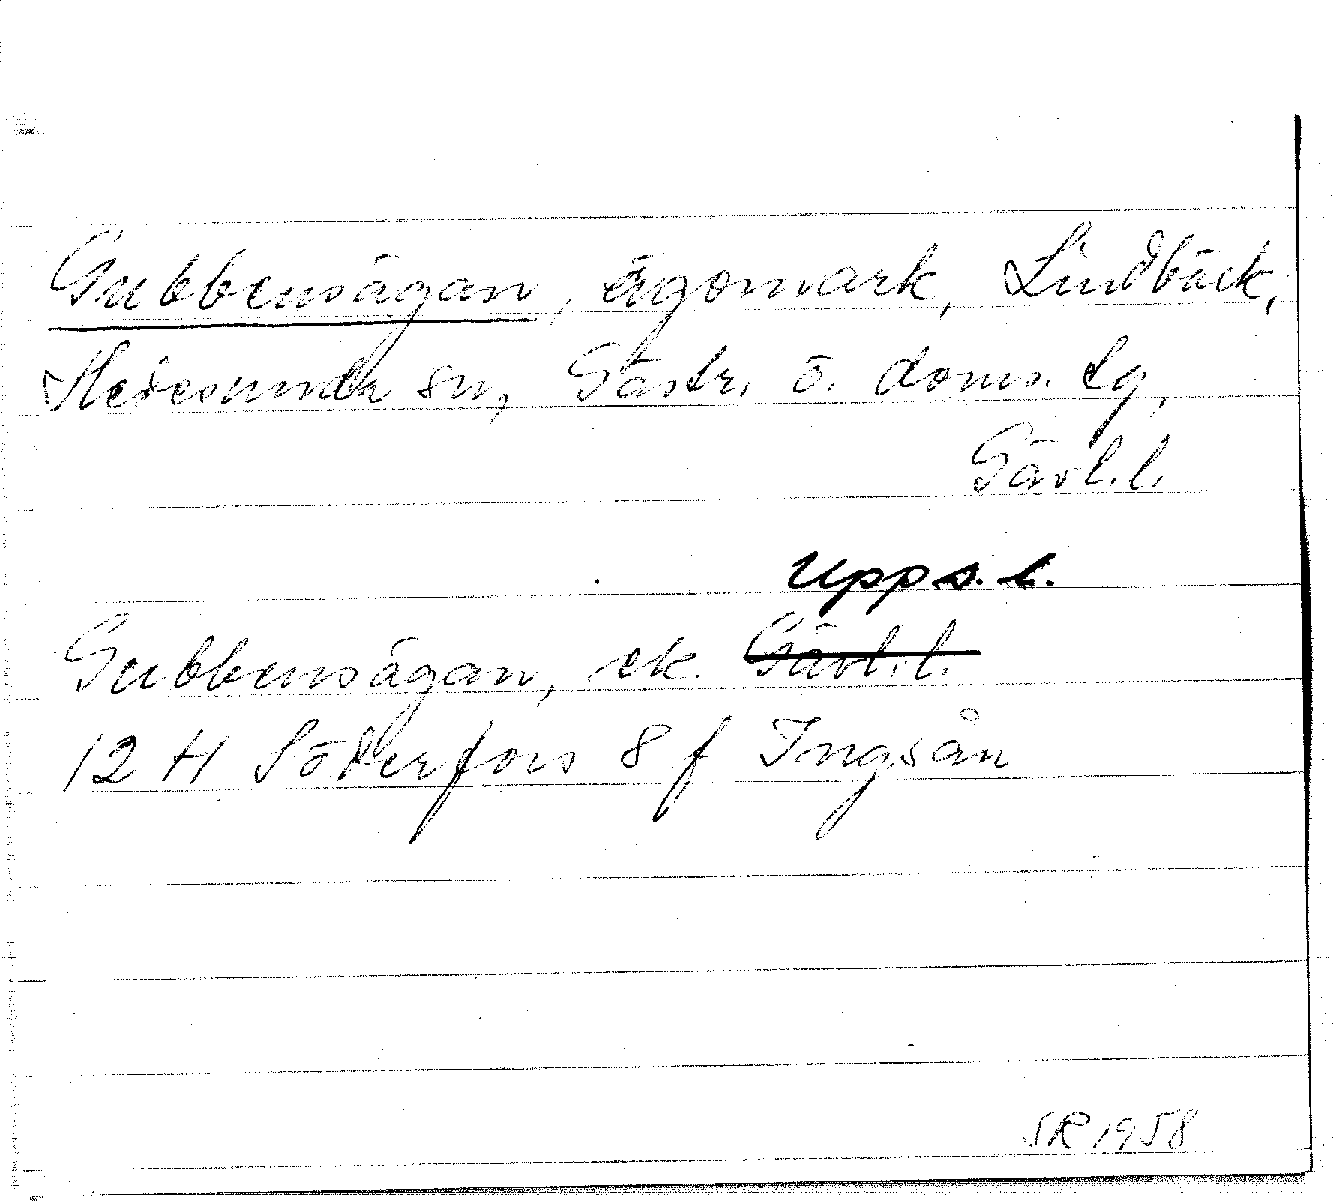 Gubbensägan, ägomark, Lindbäck,
Hedesunda sn, Gästr. ö. doms. lg,
Gävl.l.
Upps. l.
Gubbensägan, ek. Gävl.l.
12 H Söderfors 8 f Ingsån
SR 1958